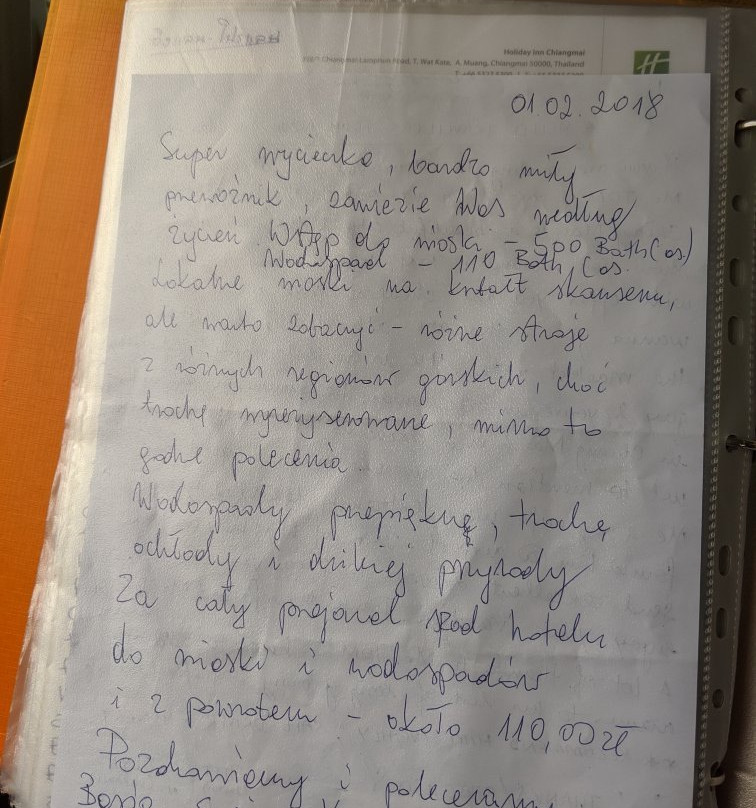 Holiday Inn Chiangmai
318/1 Chiangmai-Lamphun Road, T. Wat Kate, A. Muang, Chiangmai 50000, Thailand
01.02.2018
Super wycieczka, bardzo miły
przewoźnik, zawiezie Was według
życzeń. Wstęp do wioski - 500 Bath (os.)
Wodospad - 110 Bath (os.
Lokalne wioski na kształt skansenu,
ale warto zobaczyć - różne stroje
z różnych regionów górskich, choć
trochę wyreżyserowane, mimo to
godne polecenia.
Wodospady przepiękne, trochę
ochłody i dzikiej przyrody
Za cały przejazd spod hotelu
do wioski i wodospadów
i z powrotem - około 110,00 zł
Pozdrawiamy i polecamy